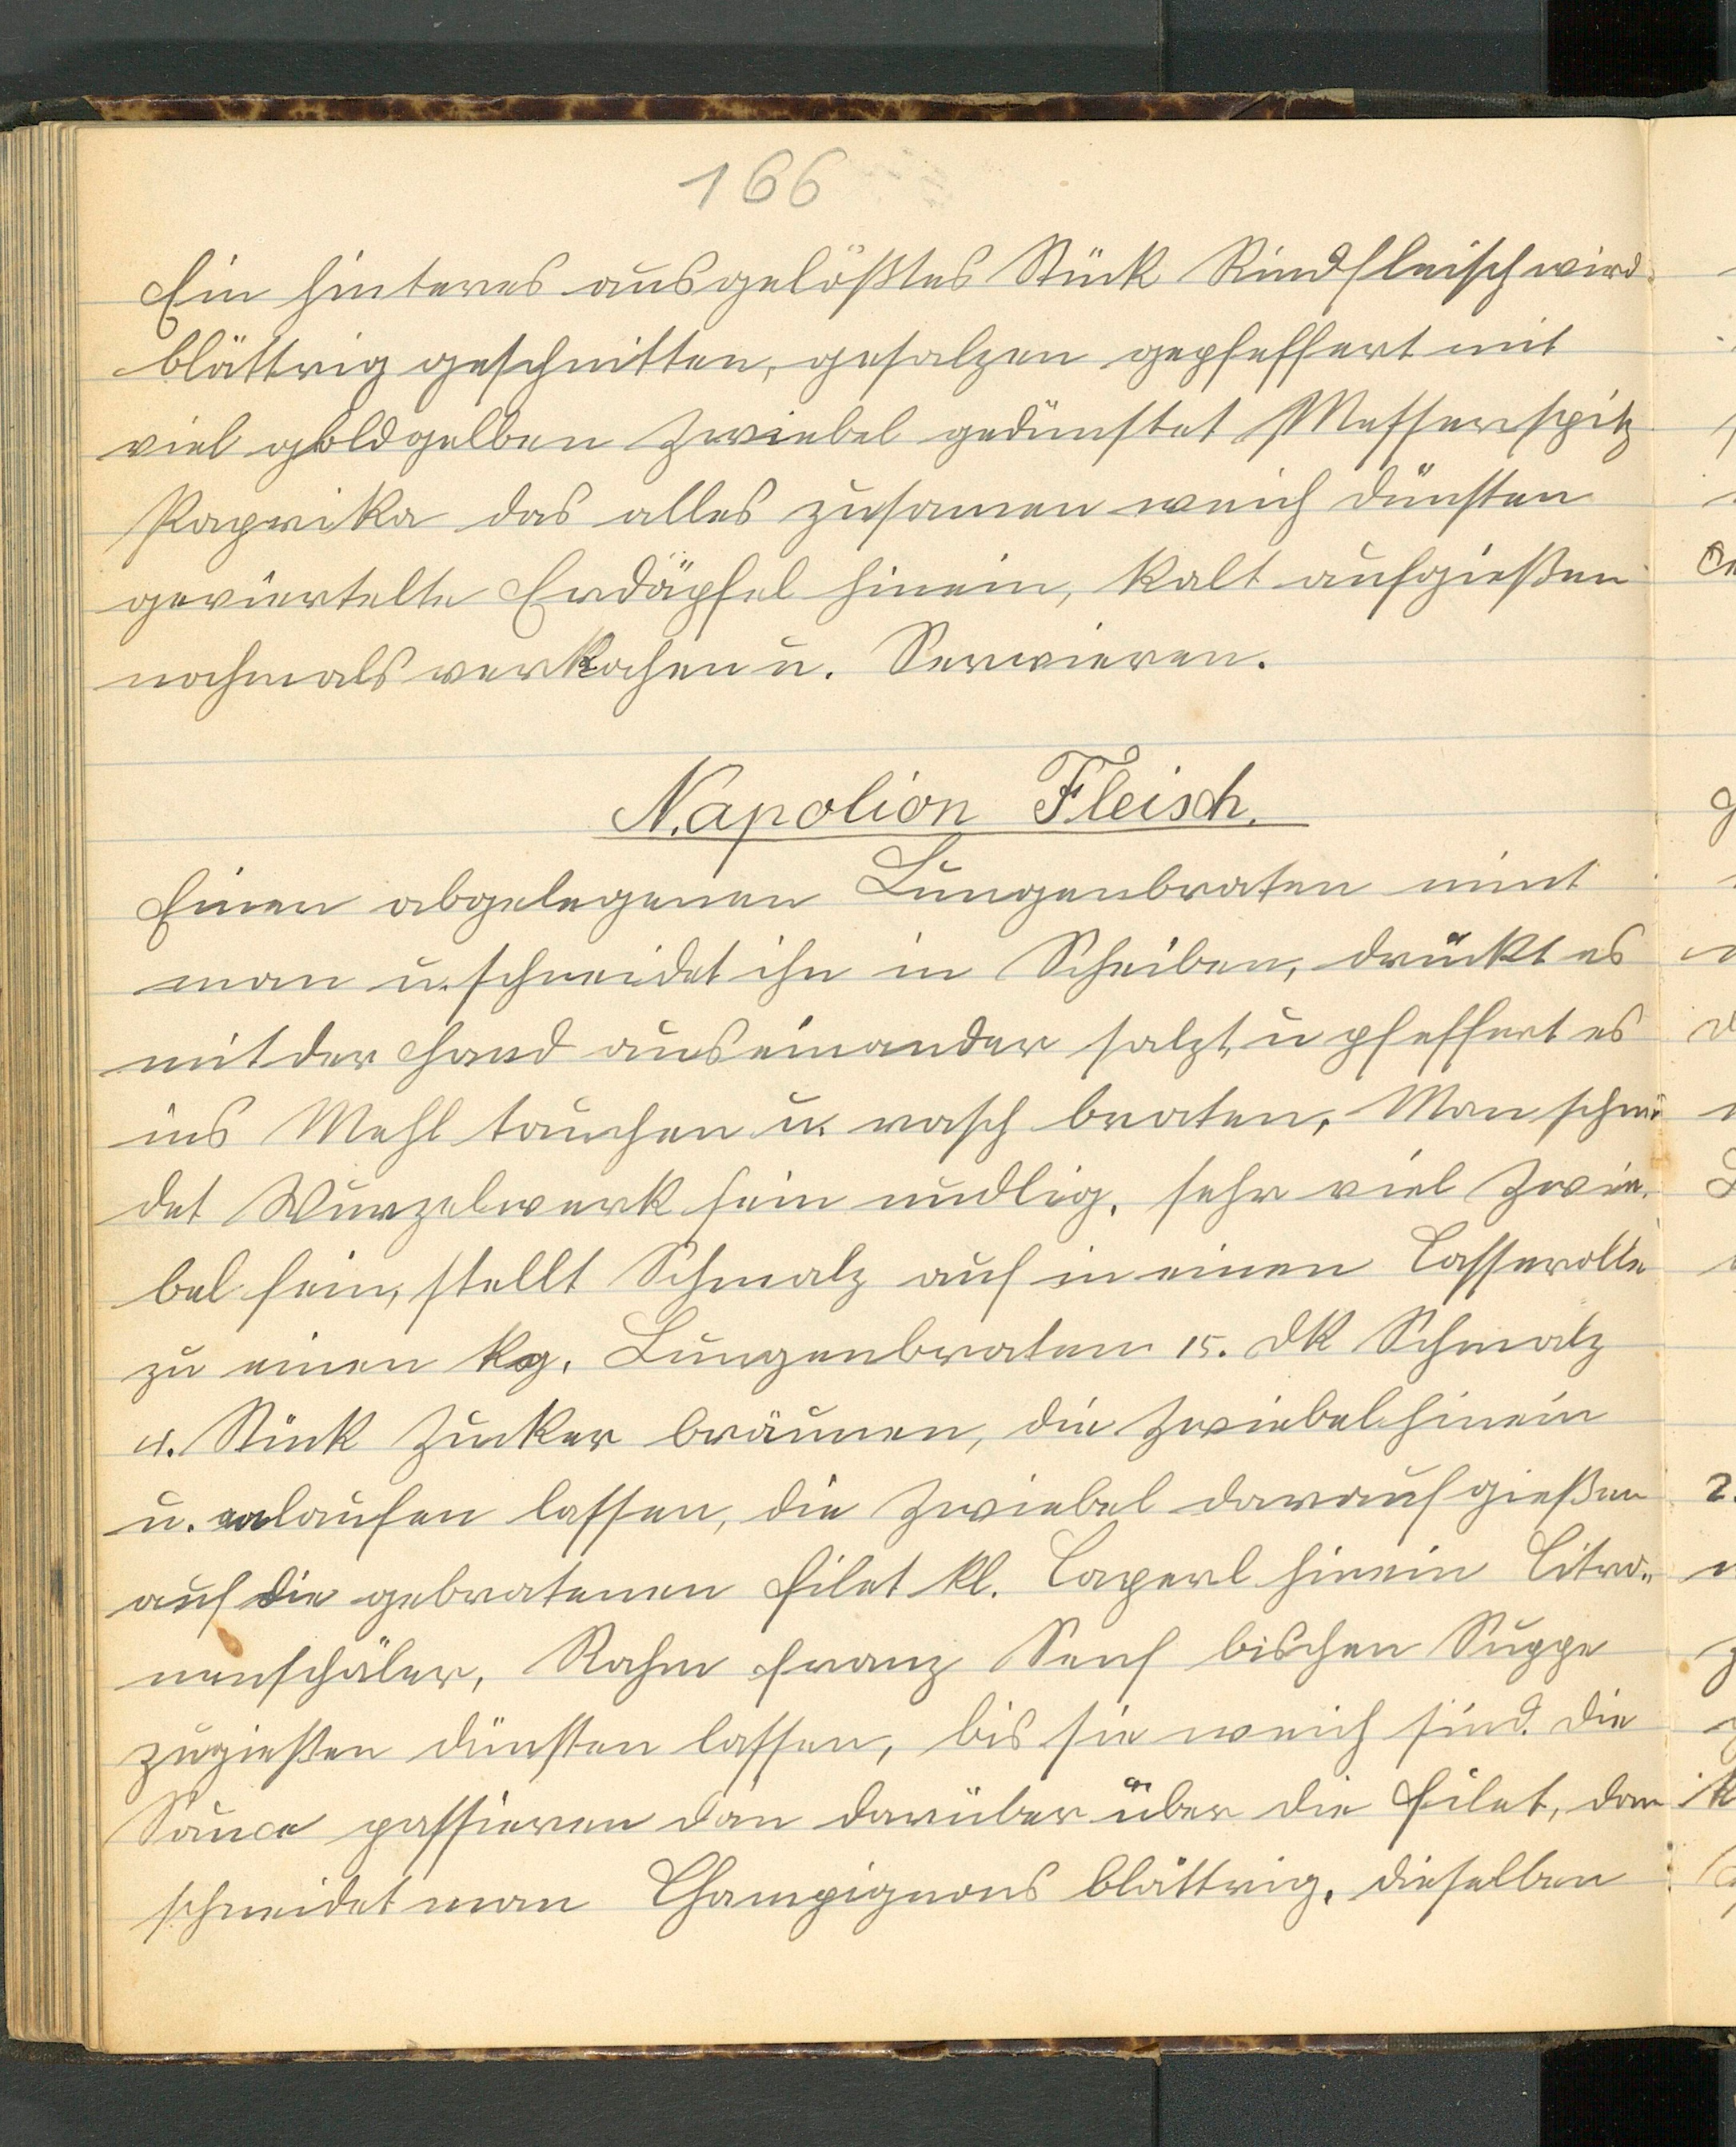 166
Ein hinteres ausgelößtes Stück Rindfleisch wird
blättrig geschnitten, gesalzen gepfeffert mit
viel goldgelben Zwiebel gedünstet Messerspitz
Paprika das alles zusamen weich dünsten
geviertelte Erdäpfel hinein, kalt aufgießen
nochmals verkochen u. Servieren.
Napolion Fleisch.
Einen abgelegenen Lungenbraten nimt
man u. schneidet ihn in Scheiben, drückt es
mit der Hand auseinander salzt, u pfeffert es
ins Mehl tauchen u. rasch braten, Man schnei
det Wurzelwerk fein nudlig, sehr viel Zwie-
bel fein, stellt Schmalz auf in einen Casserolle
zu einen kg. Lungenbraten 15. dk Schmalz
4. Stück Zucker bräunen, die Zwiebel hinein
u. anlaufen lassen, die Zwiebel darauf gießen
auf die gebratenen Filet kl. Caperl hinein Citro-
nenschäler, Rahm franz Senf bischen Suppe
zugießen dünsten lassen, bis sie weich sind. die
Sauce passieren dan darüber über die Filet, dan
schneidet man Champignons blättrig, dieselben